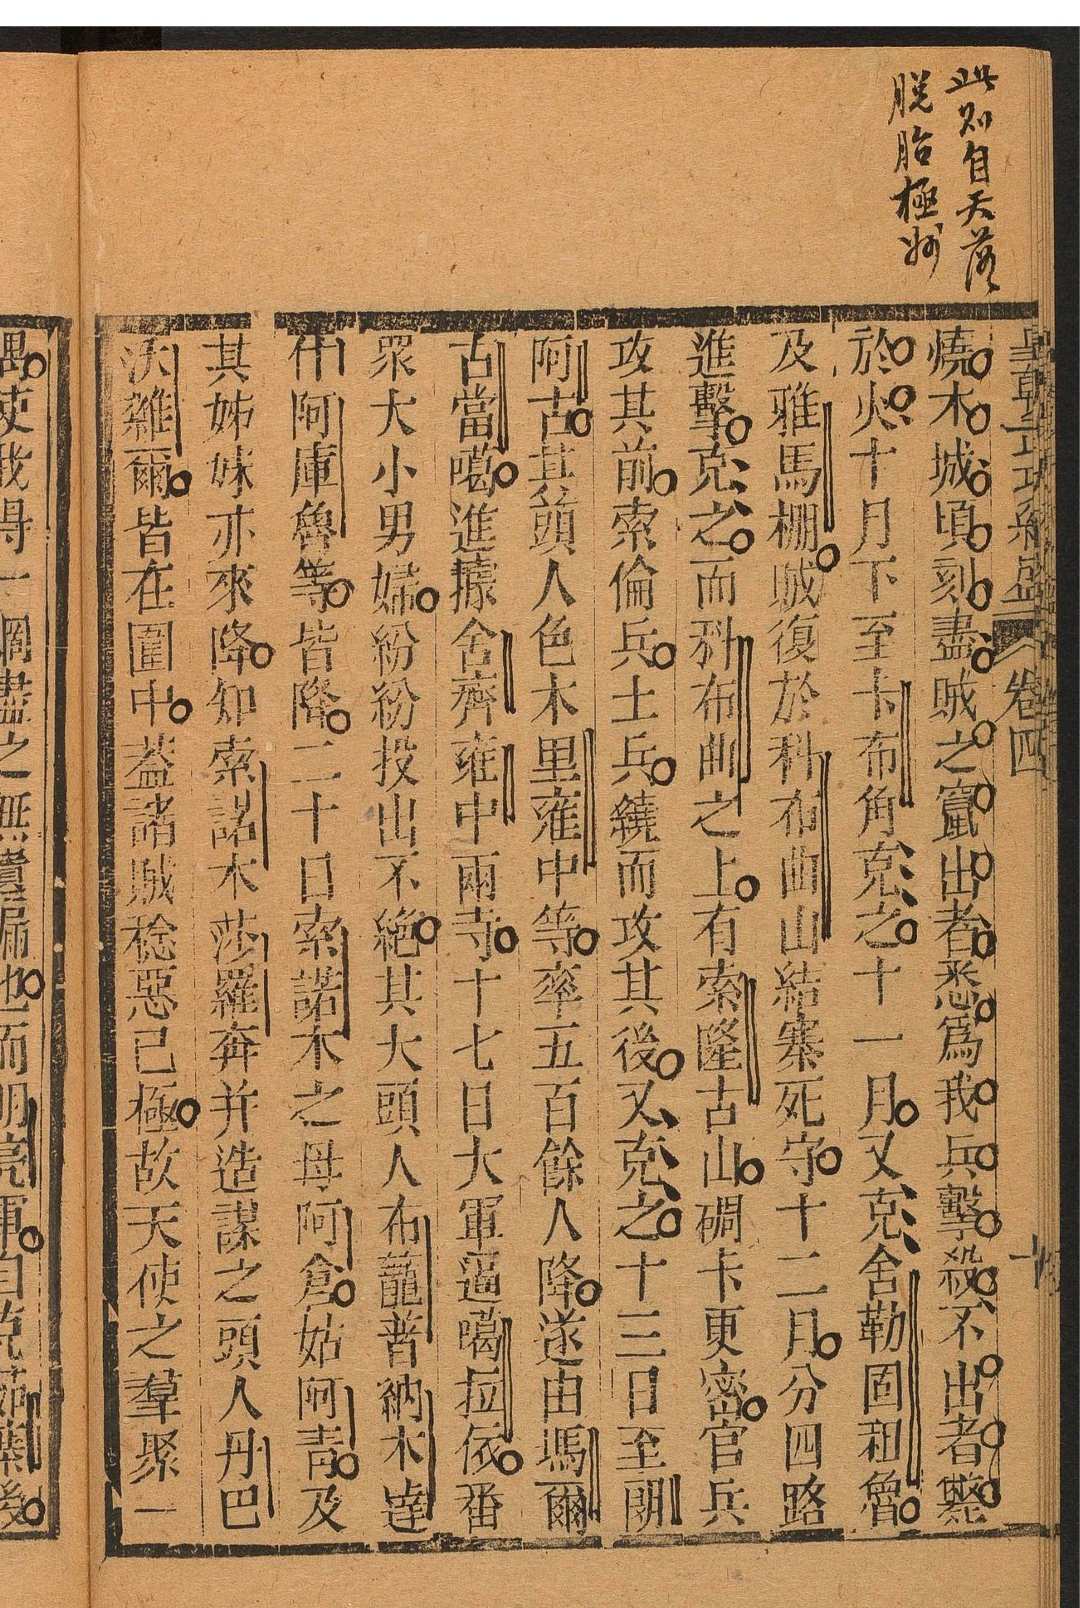 此則自天落
脱胎極妙
皇朝武功紀盛 卷四
燒木城頃刻盡賊之竄出者悉爲我兵擊殺不出者斃
於火十月下至卡布角克之十一月又克舍勒固租魯
及雅馬棚賊復於科布曲山結寨死守十二月分四路
進擊克之而科布曲之上有索隆古山碉卡更密官兵
攻其前索倫兵土兵繞而攻其後又克之十三日至朗
阿古其頭人色木里雍中等率五百餘人降遂由瑪爾
古當噶進據舍齊雍中兩寺十七日大軍逼噶拉依番
眾大小男婦紛紛投出不絶其大頭人布籠普納木達
什阿庫魯等皆降二十日索諾木之母阿倉姑阿青及
其姊妹亦來降知索諾木莎羅奔并造謀之頭人丹巴
沃雜爾皆在圍中蓋諸賊稔惡已極故天使之羣聚一
使我得一網盡之無遺漏也而明亮軍自克茹寨後